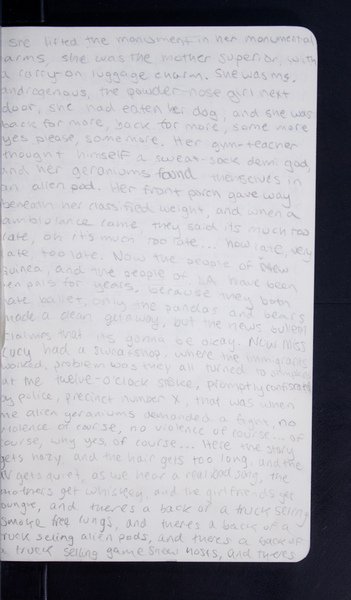 She lifted the monument in her monumental
arms, she was the mother superior, with
a carry-on luggage charm. She was ms.
androgenous, the powder-nose girl next
door, she had eaten her dog, and she was
back for more, back for more, some more
yes please, some more. Her gym teacher
thought himself a sweat-sock demi god,
and her geraniums found themselves in
an alien pod. Her front porch gave way
beneath her classified weight, and when a
ambulance came they said its much too
late, oh it's much too late... how late, very
late, too late. Now the people of New
Guinea, and the people of L.A. have been
pen pals for years, because they both
hate ballet, only the pandas and bears
made a clean getaway, but the news bulletin
claims that its gonna be okay. New Miss
Lucy had a sweatshop, where the immigrants
worked, problem was they all turned to
at the twelve-o'clock strike, promptly confiscated
by police, precinct number X, that was when
the alien geraniums demanded a fight, no
violence of course, no violence of course... of
course, why yes of course... Here the story
gets hazy and the hair gets too long, and the
TV gets quiet, as we hear a real bad song, the
mothers get whiskery, and the girlfriends get
and there's a back of a truck selling
smoke free lungs, and there's a back of a
truck selling alien pods, and there's a back of
a truck selling game show hosts, and there's